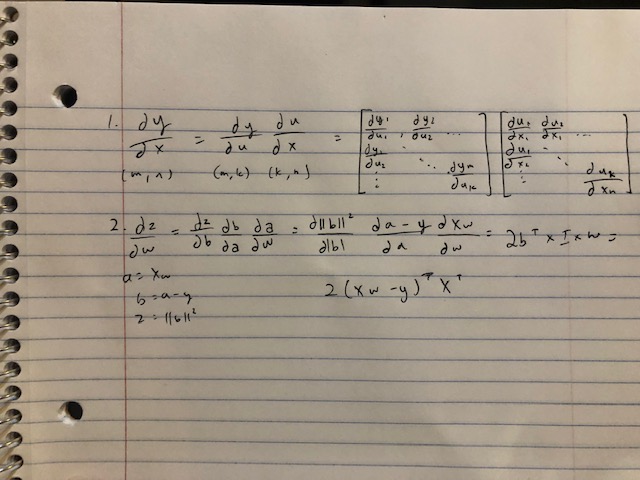 1. ∂y/∂x = ∂y/∂u ∂u/∂x = [∂y₁/∂u₁, ∂y₂/∂u₁ ... ; ∂y₁/∂u₂ ⋱ ; ⋮ ∂yₘ/∂uₖ] [∂u₁/∂x₁ ∂u₂/∂x₁ ... ; ∂u₁/∂x₂ ⋱ ; ⋮ ∂uₖ/∂xₙ]
(m, n) (m, k) (k, n)
2. ∂z/∂w = ∂z/∂b ∂b/∂a ∂a/∂w = ∂||b||²/∂|b| ∂a-y/∂a ∂Xw/∂w = 2bᵀ × I × w =
a = Xw
b = a-y 2(Xw - y)ᵀ Xᵀ
z = ||b||²